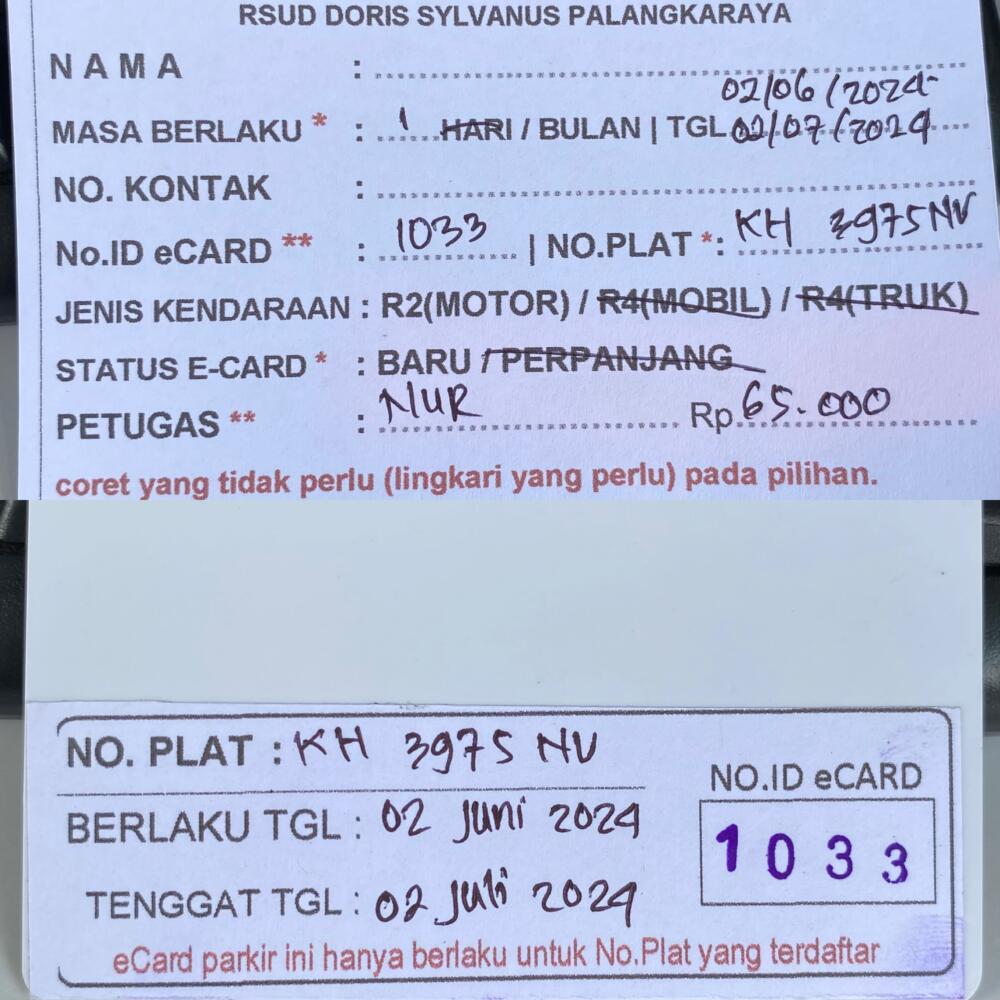 RSUD DORIS SYLVANUS PALANGKARAYA
N A M A :
02/06/2024
MASA BERLAKU * : 1 HARI / BULAN | TGL 02/07/2024
NO. KONTAK :
No.ID eCARD ** : 1033 | NO.PLAT *: KH 3975 NV
JENIS KENDARAAN : R2(MOTOR) / R4(MOBIL) / R4(TRUK)
STATUS E-CARD * : BARU / PERPANJANG
PETUGAS ** : NUR Rp 65.000
coret yang tidak perlu (lingkari yang perlu) pada pilihan.
NO. PLAT : KH 3975 NV
NO.ID eCARD
BERLAKU TGL : 02 Juni 2024
1 0 3 3
TENGGAT TGL : 02 Juli 2024
eCard parkir ini hanya berlaku untuk No.Plat yang terdaftar